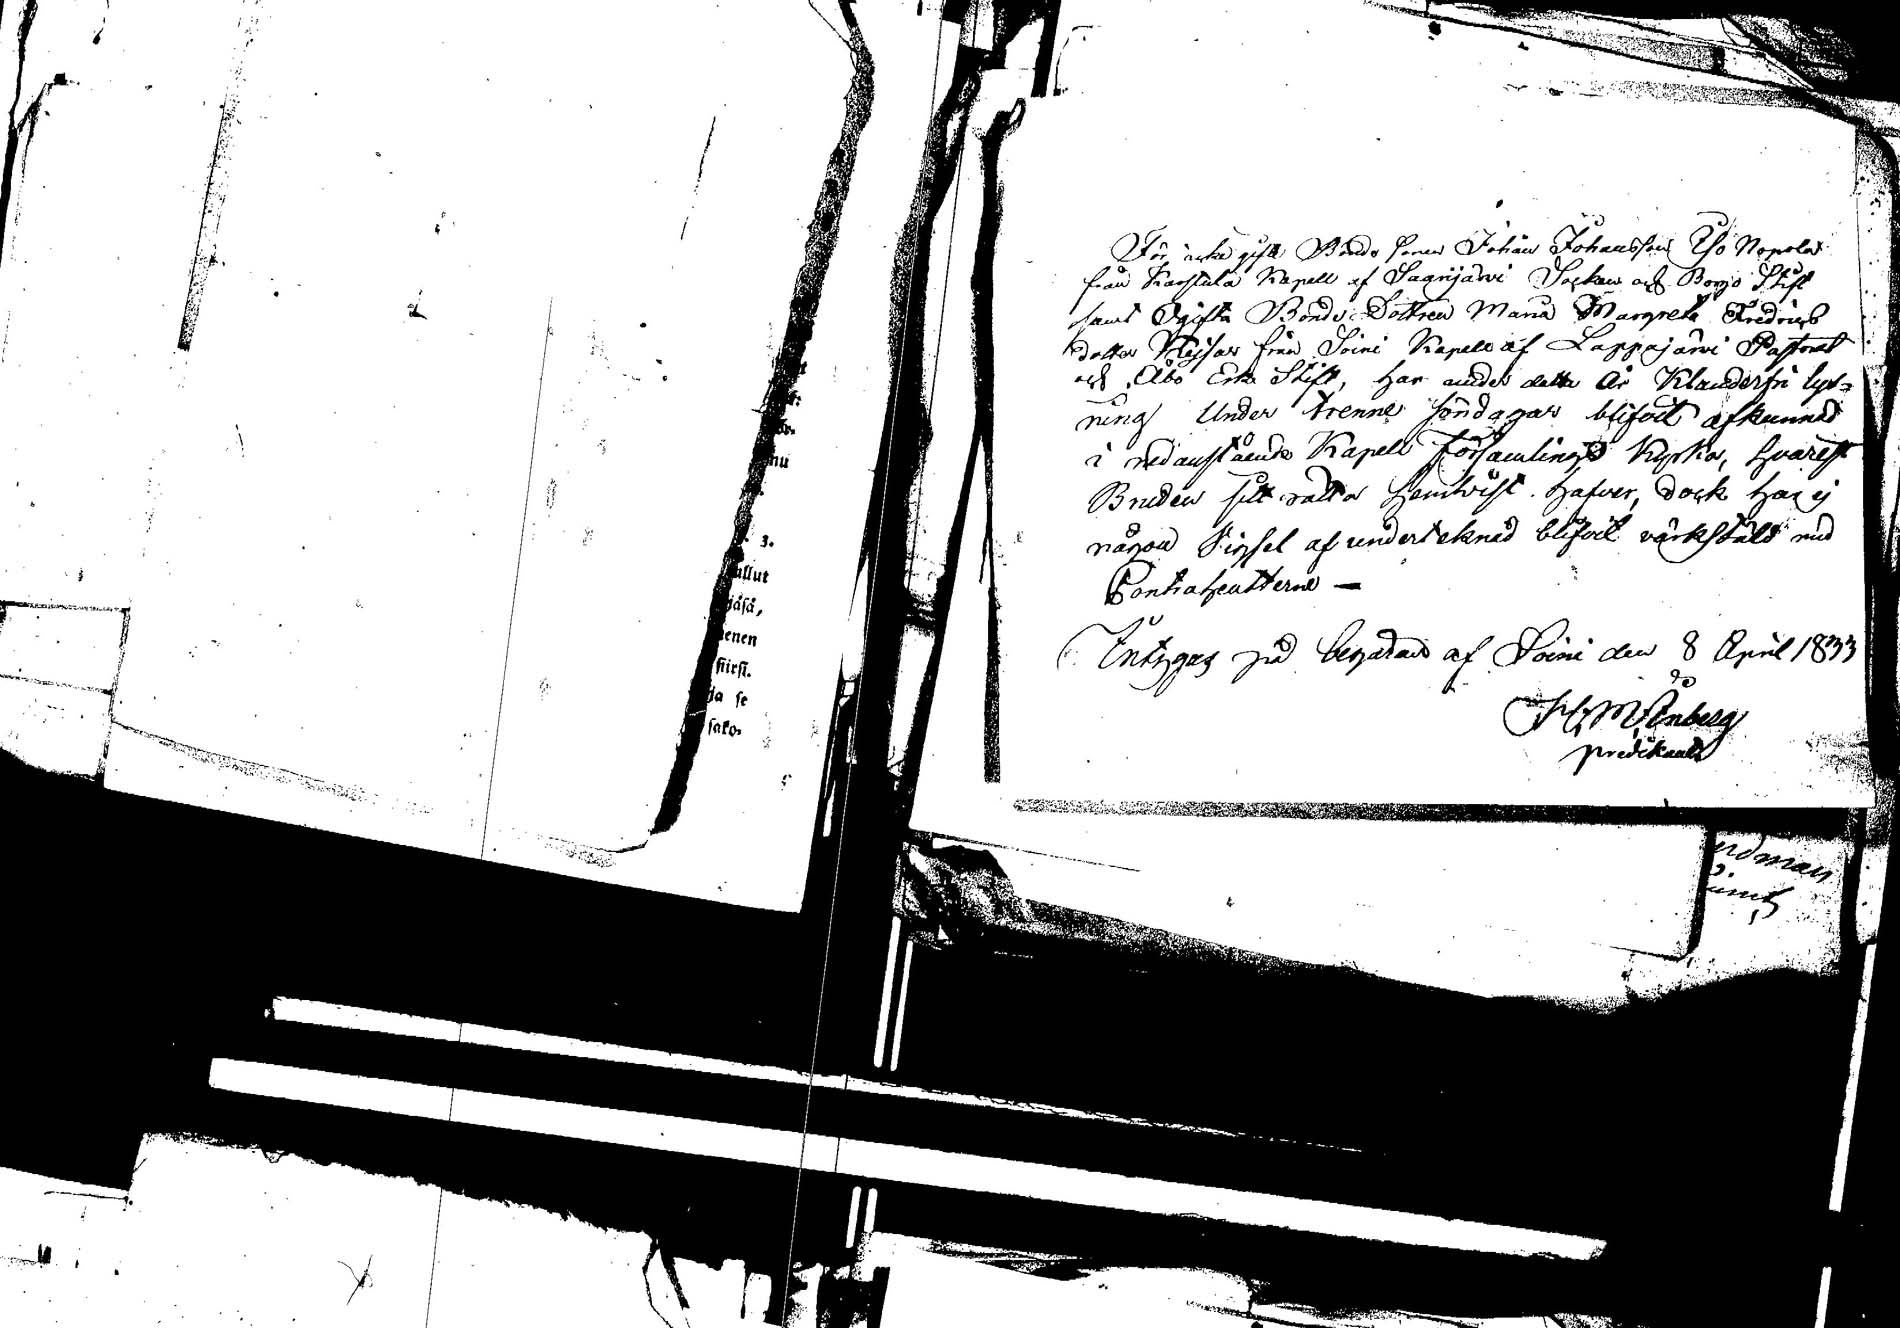 3.
allut
jäsä,
enen
siirsi.
ja se
sako-
För icke gifte Bonde sonen Johan Johansson Iso Nopola
från Karstula Kapell af Saarijärvi Socken och Borgo Stift
samt Ogifta Bonde Dottren Maria Margreta Fredrics
dotter Keisar från Soini Kapell af Lappajärvi Pastorat
och Åbo Erke Stift, har under detta År Klanderfri lys-
ning Under trenne söndagar blifvit afkunnad
i nedanstående Kapell Församlings Kyrka, hvarest
Bruden sitt rätta hemvist hafver, dock har ej
någon Vigsel af undertecknad blifvit värkstäld med
Contrahenterne —
Intygas på begäran af Soini den 8 April 1833
predikant
ndman